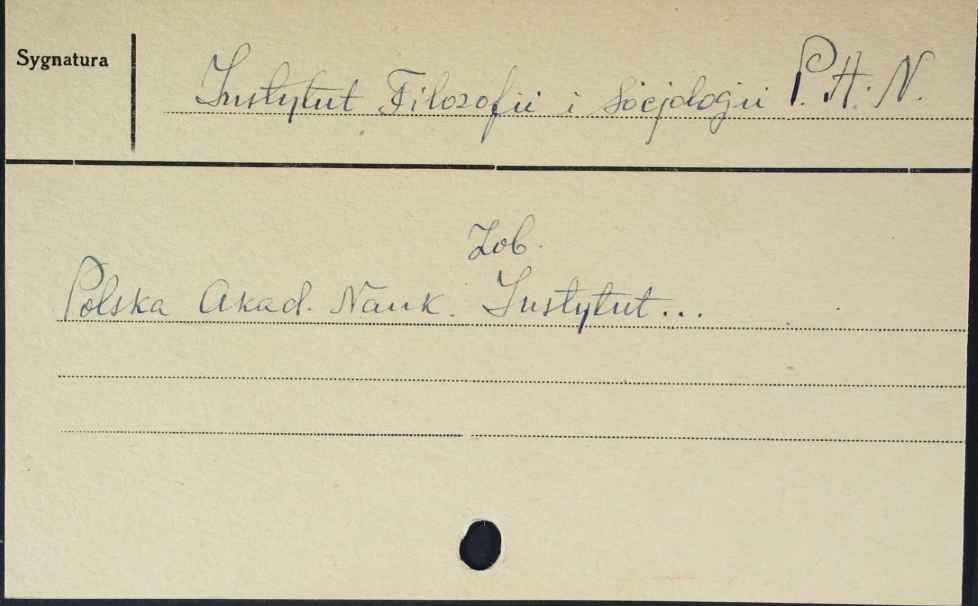 Sygnatura
Instytut Filozofii i Socjologii P.A.N.
Zob.
Polska Akad. Nauk. Instytut...